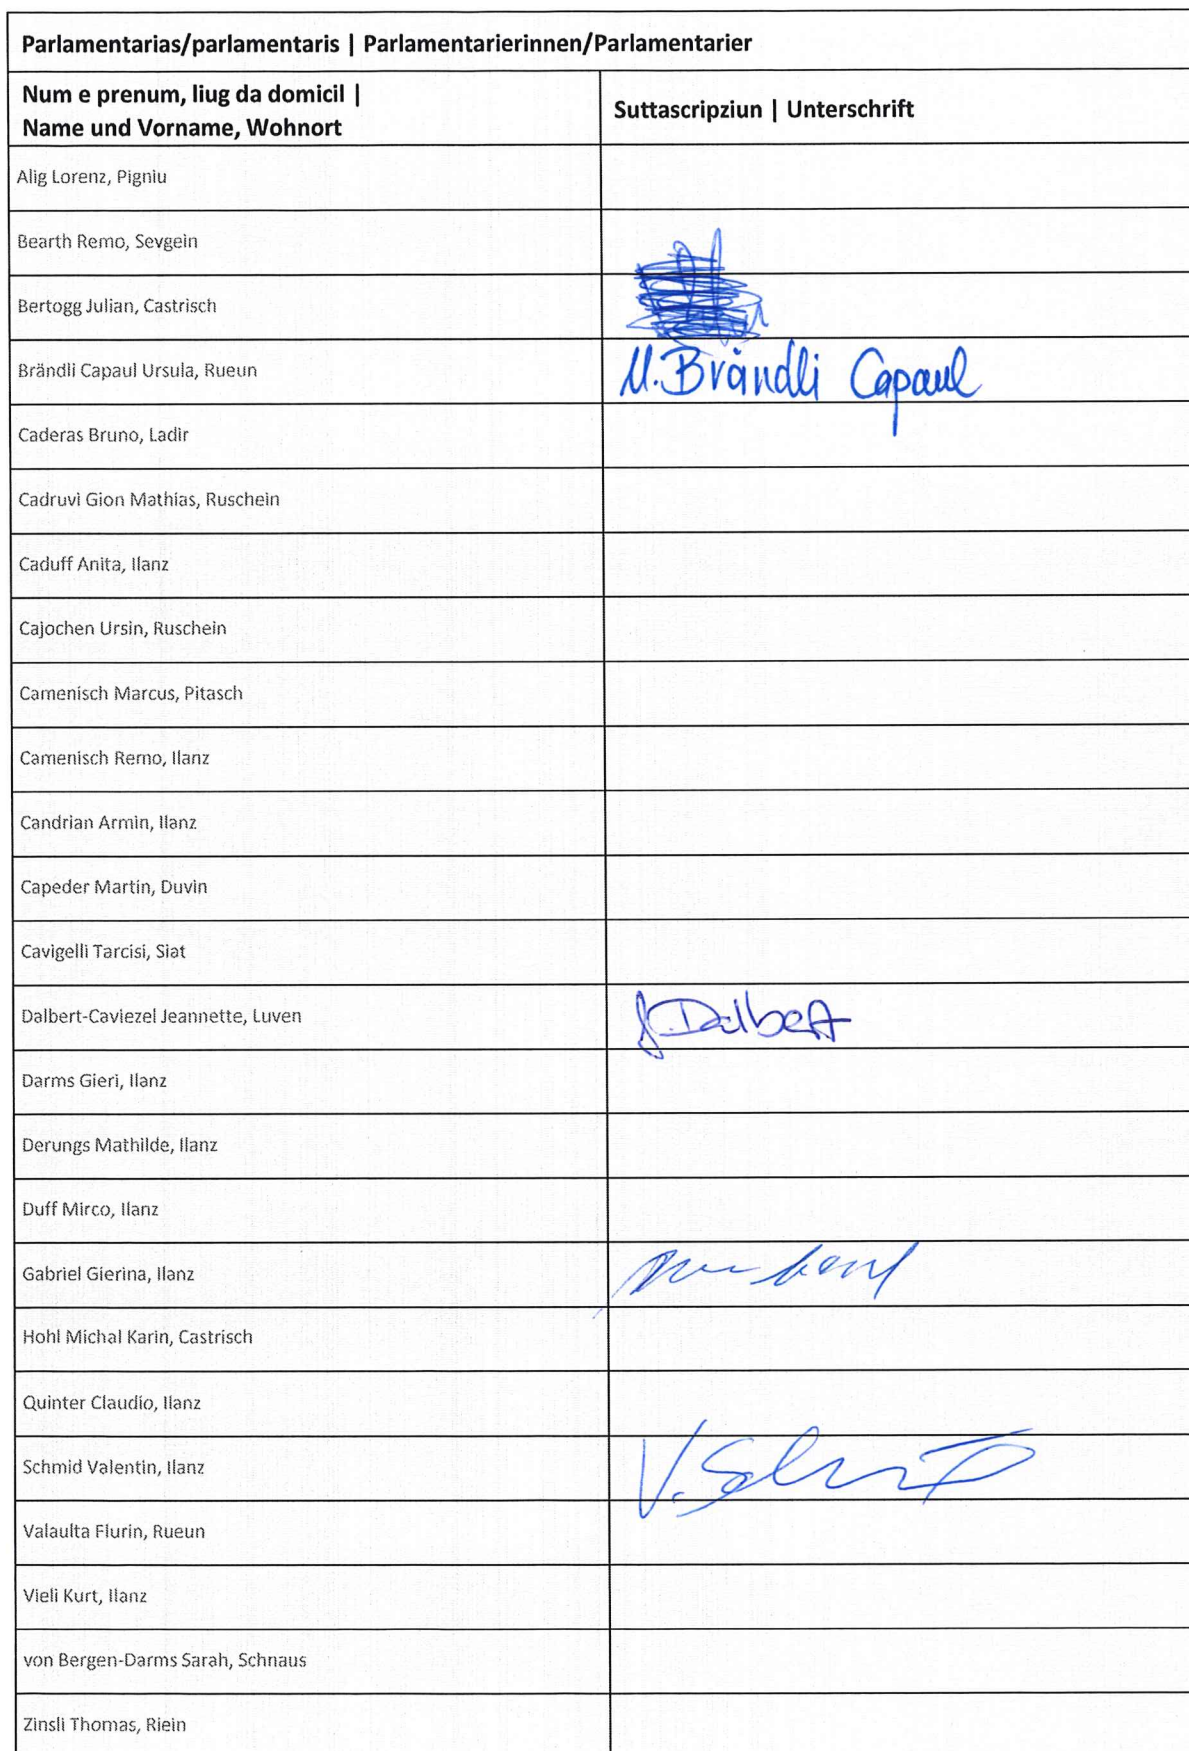 Parlamentarias/parlamentaris | Parlamentarierinnen/Parlamentarier
Num e prenum, liug da domicil |
Name und Vorname, Wohnort
Suttascripziun | Unterschrift
Alig Lorenz, Pigniu
Bearth Remo, Sevgein
Bertogg Julian, Castrisch
Brändli Capaul Ursula, Rueun
U. Brändli Capaul
Caderas Bruno, Ladir
Cadruvi Gion Mathias, Ruschein
Caduff Anita, Ilanz
Cajochen Ursin, Ruschein
Camenisch Marcus, Pitasch
Camenisch Remo, Ilanz
Candrian Armin, Ilanz
Capeder Martin, Duvin
Cavigelli Tarcisi, Siat
Dalbert-Caviezel Jeannette, Luven
J. Dalbert
Darms Gieri, Ilanz
Derungs Mathilde, Ilanz
Duff Mirco, Ilanz
Gabriel Gierina, Ilanz
Hohl Michal Karin, Castrisch
Quinter Claudio, Ilanz
Schmid Valentin, Ilanz
V. Schmid
Valaulta Flurin, Rueun
Vieli Kurt, Ilanz
von Bergen-Darms Sarah, Schnaus
Zinsli Thomas, Riein